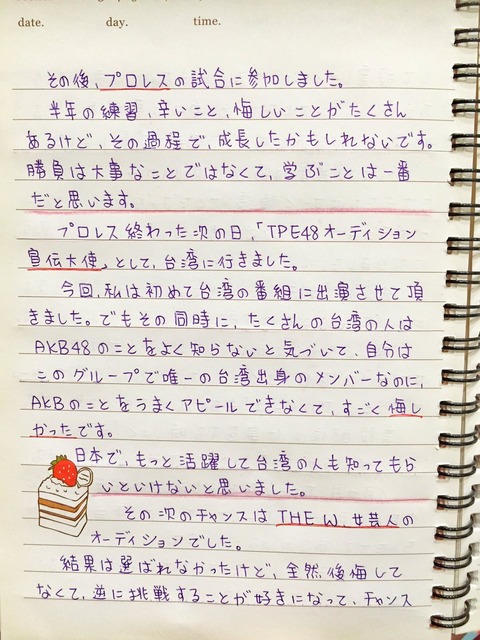 date. day. time.
その後、プロレスの試合に参加しました。
半年の練習、辛いこと、悔しいことがたくさん
あるけど、その過程で、成長したかもしれないです。
勝負は大事なことではなくて、学ぶことは一番
だと思います。
プロレス終わった次の日、「TPE48オーディション
宣伝大使」として、台湾に行きました。
今回、私は初めて台湾の番組に出演させて頂
きました。でもその同時に、たくさんの台湾の人は
AKB48のことをよく知らないと気づいて、自分は
このグループで唯一の台湾出身のメンバーなのに、
AKBのことをうまくアピールできなくて、すごく悔し
かったです。
日本で、もっと活躍して台湾の人も知ってもら
いといけないと思いました。
その次のチャンスは THE W、女芸人の
オーディションでした。
結果は選ばれなかったけど、全然後悔して
なくて、逆に挑戦することが好きになって、チャンス